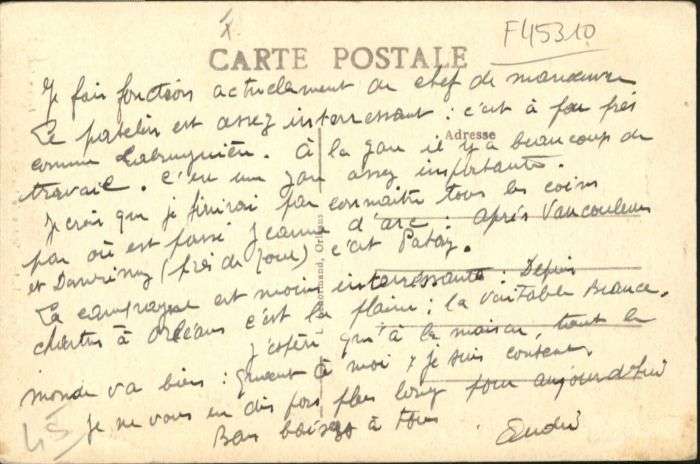 F45310
CARTE POSTALE
Adresse
Je fais fonction actuellement de chef de manœuvre
Le patelin est assez interressant : c'est à peu près
comme Labruguière. À la gare il y a beaucoup de
travail. C'est une gare assez importante.
Je crois que je finirai par connaitre tous les coins
par où est passé Jeanne d'arc : après Vaucouleurs
et Domrémy (près de Toul) c'est Patay.
La campagne est moins interressante : Depuis
chartres à Orléans c'est la plaine ; la véritable Beauce.
J'espère qu'à la maison, tout le
monde va bien : Quant à moi je suis content
Je ne vous en dis pas plus long pour aujourd'hui
Bons baisers à tous
André
Orléans
45